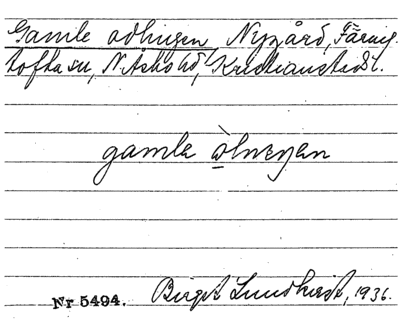 Gamle odlingen Nygård, Färing
tofta sn, N. Åsbo hd, Kristianstads l.
gamla
Nr 5494. Birgit Lundkvist, 1936.